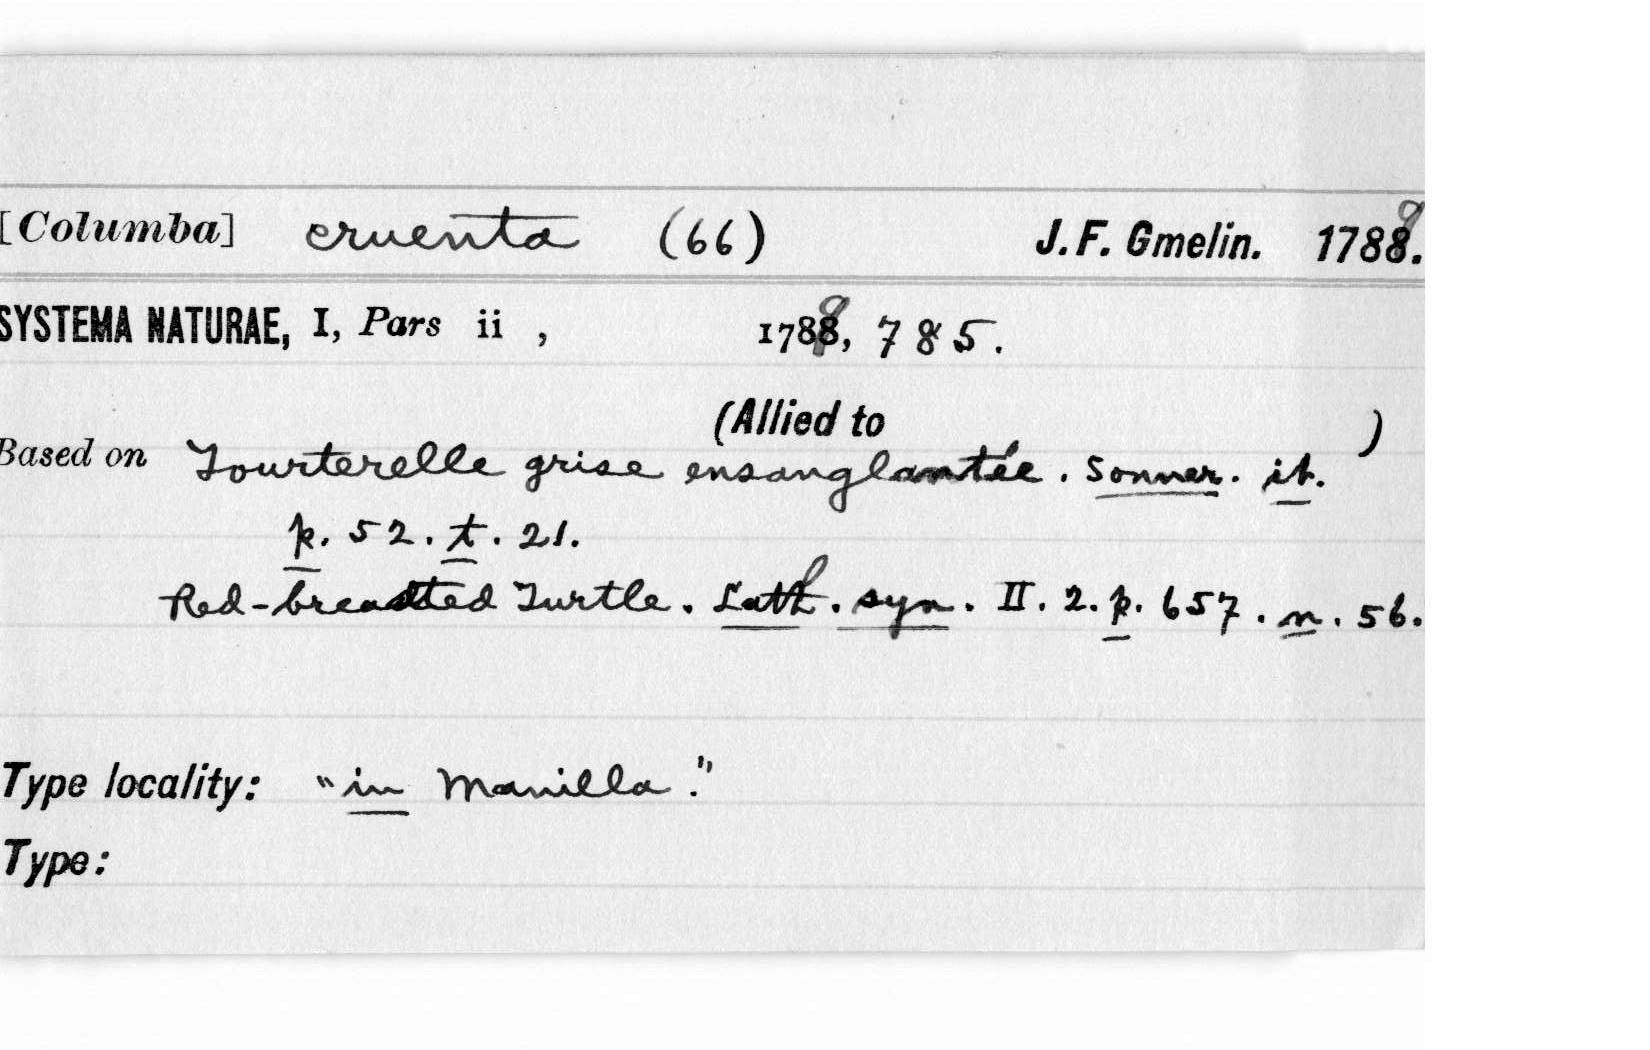 [Columba] cruenta (66) J. F. Gmelin. 1789.
SYSTEMA NATURAE, I, Pars ii , 1789, 785.
(Allied to )
Based on Tourterelle grise ensanglantée. Sonner. it.
p. 52. t. 21.
Red-breasted Turtle. Lath. syn. II. 2. p. 657. n. 56.
Type locality: "in Manilla."
Type: